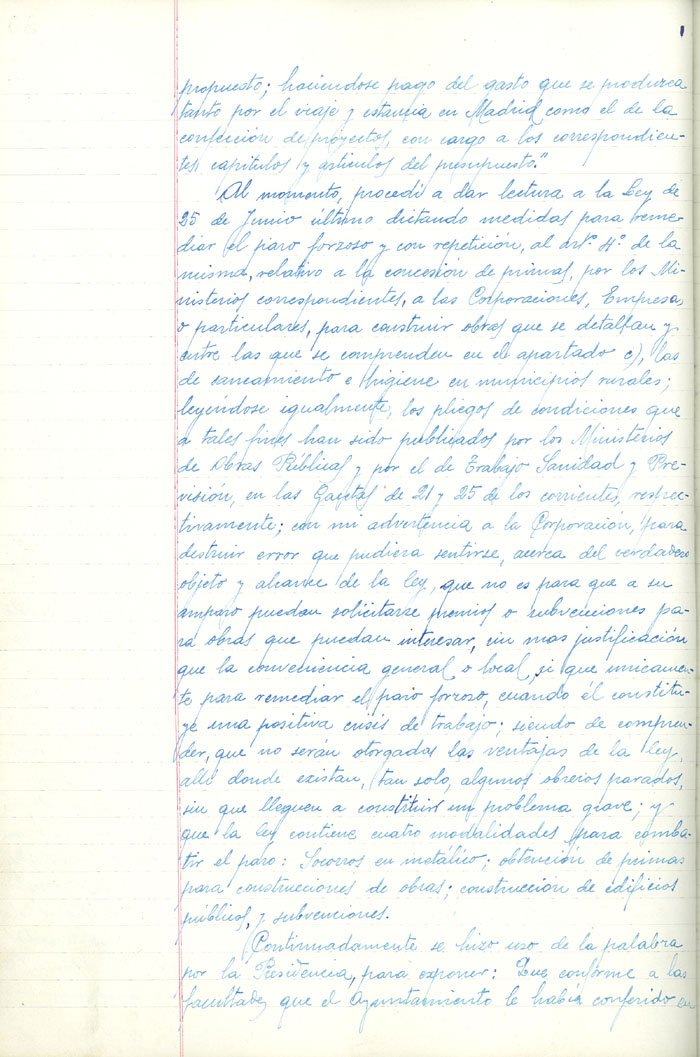 propuesto; haciendose pago del gasto que se produzca
tanto por el viaje y estancia en Madrid como el de la
confección de proyectos, con cargo a los correspondien-
tes capitulos y articulos del presupuesto."
Al momento, procedi a dar lectura a la Ley de
25 de Junio último dictando medidas para reme-
diar el paro forzoso y con repetición, al artº 4º de la
misma, relativo a la concesión de primas, por los Mi-
nisterios correspondientes, a las Corporaciones, Empresas
o particulares, para construir obras que se detallan y
entre las que se comprenden en el apartado c), las
de saneamiento e Higiene en municipios rurales;
leyéndose igualmente, los pliegos de condiciones que
a tales fines han sido publicados por los Ministerios
de Obras Públicas y por el de Trabajo Sanidad y Pre-
visión, en las Gacetas de 21 y 25 de los corrientes, respec-
tivamente; con mi advertencia a la Corporación, para
destruir error que pudiera sentirse, acerca del verdadero
objeto y alcance de la ley, que no es para que a su
amparo puedan solicitarse premios o subvenciones pa-
ra obras que puedan interesar, sin mas justificación
que la conveniencia general o local, si que unicamen-
te para remediar el paro forzoso, cuando él constitu-
ye una positiva crisis de trabajo; siendo de compren-
der, que no serán otorgadas las ventajas de la ley,
allí donde existan, tan solo, algunos obreros parados,
sin que lleguen a constituir un problema grave; y
que la ley contiene cuatro modalidades para comba-
tir el paro: Socorros en metálico; obtención de primas
para construcciones de obras; construcción de edificios
públicos, y subvenciones.
Continuadamente se hizo uso de la palabra
por la Presidencia, para exponer: Que conforme a las
facultades que el Ayuntamiento le habia conferido en